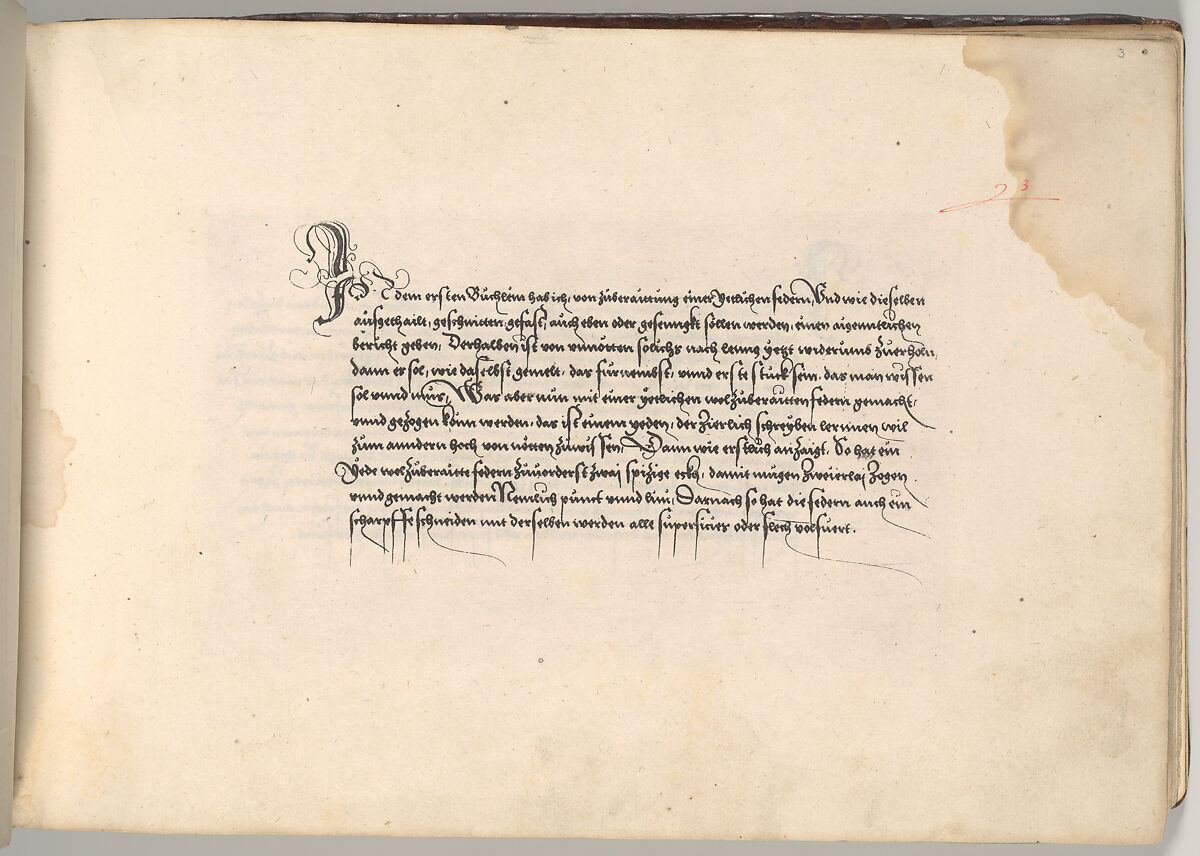 3
3
IN dem ersten Büchlein hab ich, von züberaittung einer yetlichen federn, Vnd wie dieselben
aüfgethailt, geschnitten, gefast, aüch eben oder gesennckt söllen werden, einen aigenntlichen
bericht geben, Derhalben ist von vnnötten solichs nach leng yetzt widerümb züerholn,
dann es sol, wie daselbst gemelt, das fürnembst, vnnd erste stück sein, das man wissen
sol vnnd müs, Was aber nün mit einer yetlichen wolzüberaitten federn gemacht,
vnnd gezogen künn werden, das ist einem yeden, der zierlich schreyben lernnen wil
züm anndern hoch von nötten züwissen, Dann wie erstlich anzaigt, So hat ein
yede wolzüberaitte federn züuorderst zwai spizige eckh, damit mügen zweierlaj zogen
vnnd gemacht werden Nemlich punct vnnd lini, Darnach so hat die federn aüch ein
scharpffe schneiden mit derselben werden alle superficies oder flech volfuert.